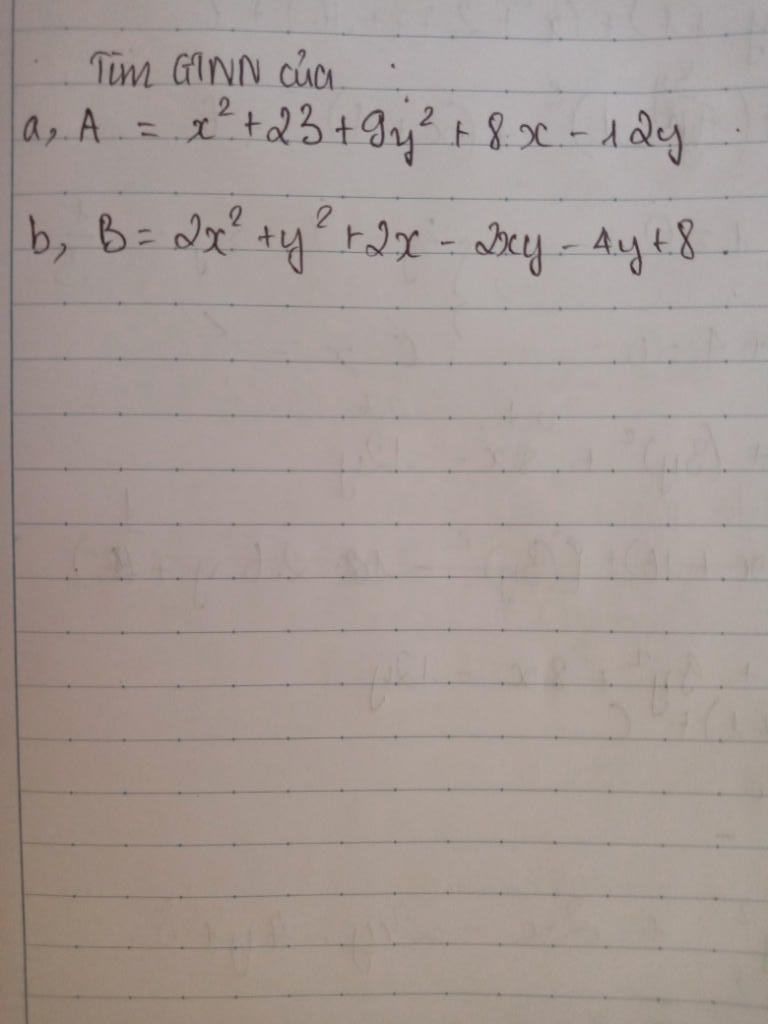 Tìm GTNN của
a, A = x² + 23 + 9y² + 8x - 12y
b, B = 2x² + y² + 2x - 2xy - 4y + 8.